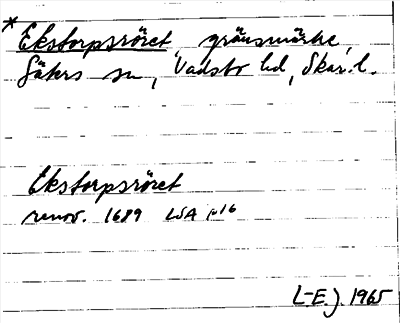 * Ekstorpsröret, gränsmärke,
Säters sn, Vadsbo hd, Skar. l.
Ekstorpsröret
renov. 1689 LSA p16
L-E.J. 1965